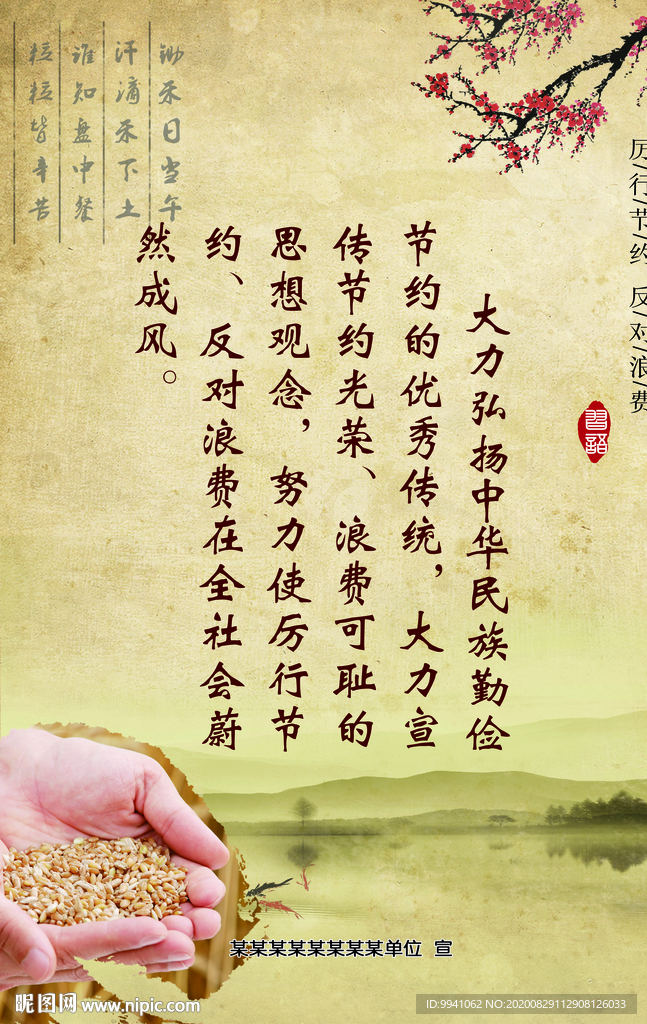 厉/行/节/约 反/对/浪/费
習語
大力弘扬中华民族勤俭
节约的优秀传统，大力宣
传节约光荣、浪费可耻的
思想观念，努力使厉行节
约、反对浪费在全社会蔚
然成风。
锄禾日当午
汗滴禾下土
谁知盘中餐
粒粒皆辛苦
某某某某某某某某单位 宣
昵图网 www.nipic.com
ID:9941062 NO:20200829112908126033